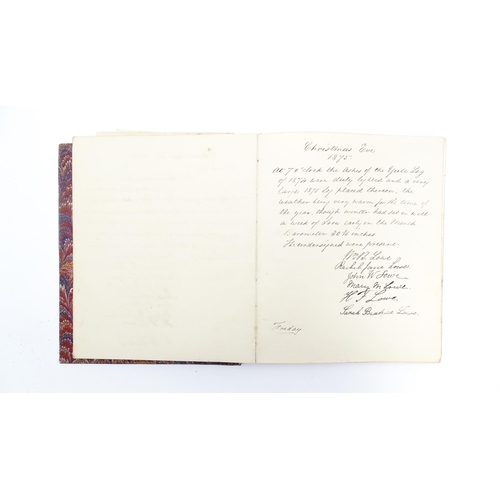 Christmas Eve
1875
At 7 o'clock the Ashes of the Yule Log
of 1874 were duly lighted and a very
large 1875 log placed thereon, the
weather being very warm for the time of
the year, though winter had set in with
a week of snow early in the Month
Barometer 30 inches
The undersigned were present.
Wm B. Lowe
Rachel Jane Lowe
John W. Lowe
Mary M Lowe
H J Lowe
Sarah Beatrice Lowe.
Friday